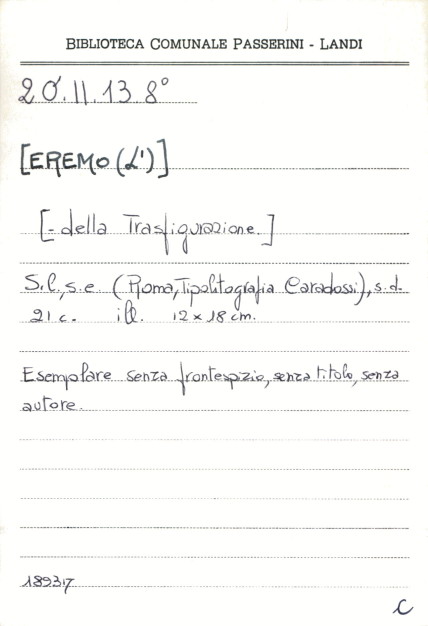 BIBLIOTECA COMUNALE PASSERINI - LANDI
20.II.13.8°
[EREMO (L')]
[- della Trasfigurazione.]
S.l., s.e. (Roma, Tipolitografia Caradossi), s.d.
21 c. ill. 12 x 18 cm.
Esemplare senza frontespizio, senza titolo, senza
autore.
189317
C